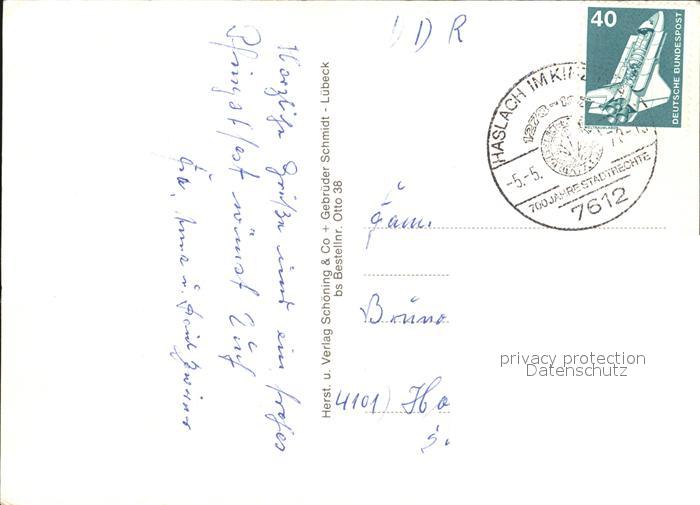 Herzliche Grüße und ein frohes
Pfingstfest wünscht Euch
u.
Herst. u. Verlag Schöning & Co + Gebrüder Schmidt - Lübeck
bs Bestellnr. Otto 38
DDR
40
DEUTSCHE BUNDESPOST
HASLACH IM KINZ
1278-
-5.-5.
700 JAHRE STADTRECHTE
7612
Fam.
Bruno
4101 Ha
privacy protection
Datenschutz